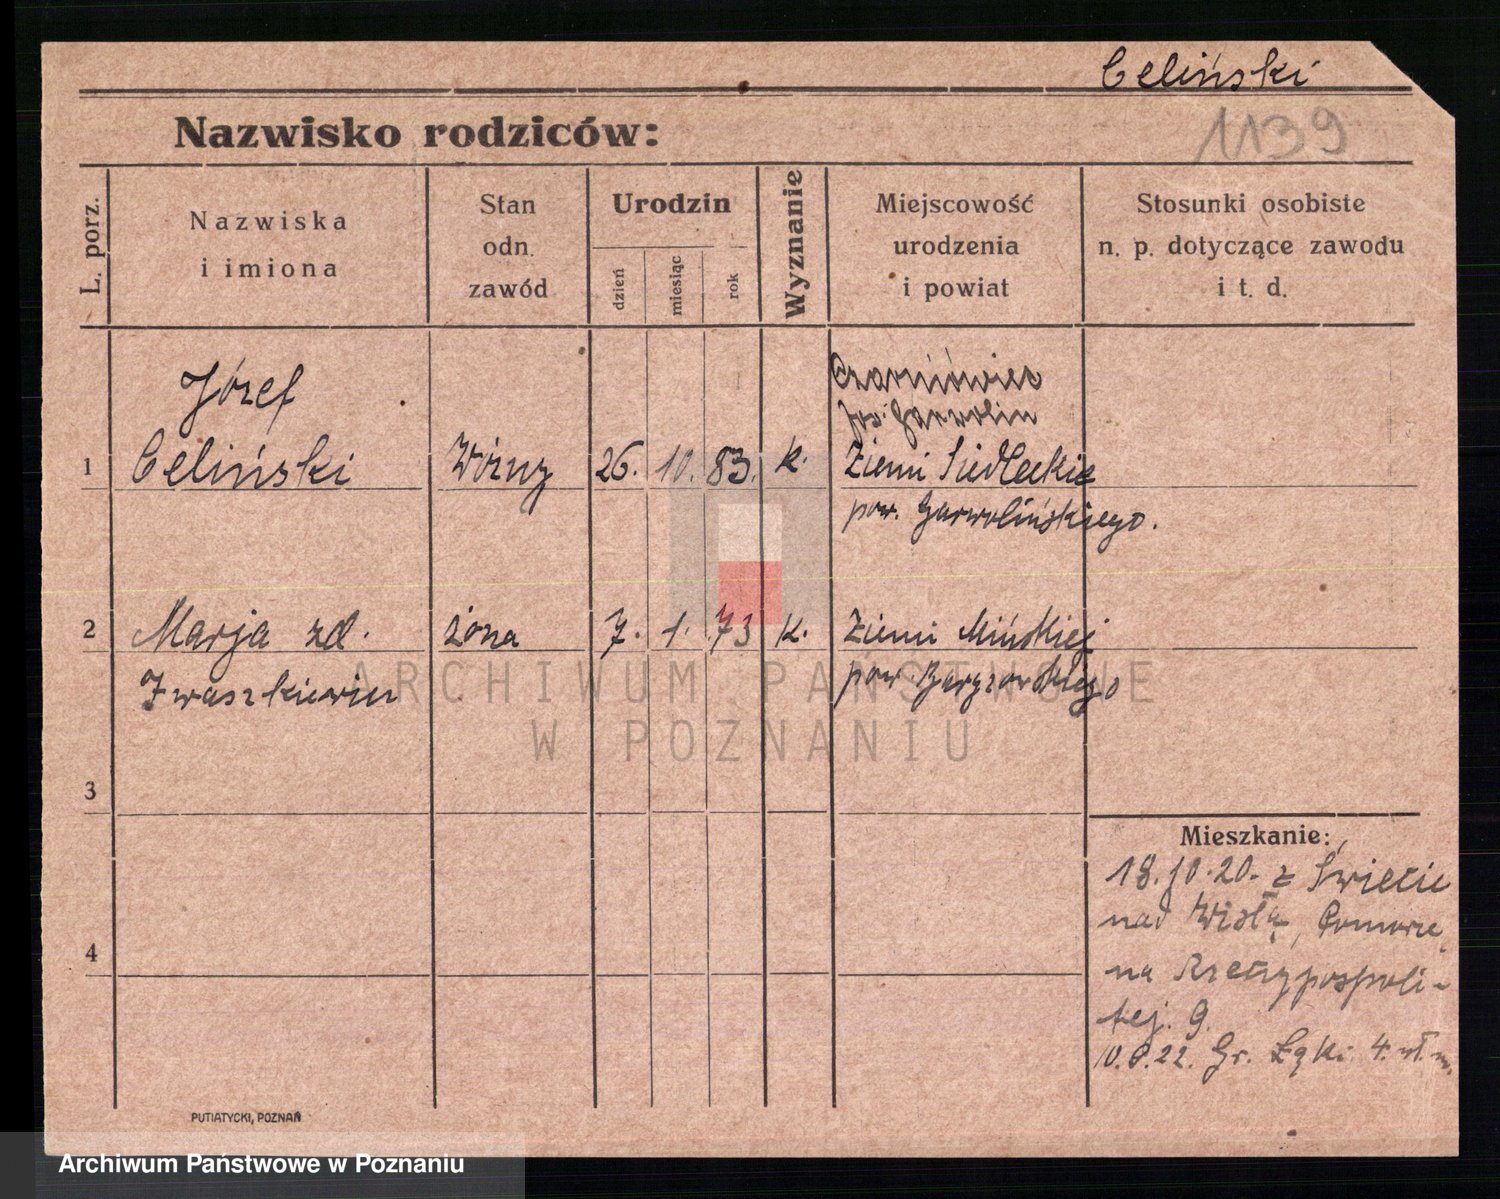 Celiński
Nazwisko rodziców:
1139
L. porz.
Nazwiska
i imiona
Stan
odn.
zawód
Urodzin
dzień
miesiąc
rok
Wyznanie
Miejscowość
urodzenia
i powiat
Stosunki osobiste
n. p. dotyczące zawodu
i t. d.
Józef
Garwolin
1 Celiński Woźny 26. 10. 83. k. Ziemi Siedleckie
pow. Garwolińskiego.
2 Marja zd. żona 7. 1. 73 k. Ziemi Mińskiej
Iwaszkiewicz pow.
ARCHIWUM PAŃSTWOWE
W POZNANIU
3
Mieszkanie:
18.10.20. z Świecie
nad Wisłą, Pomorze,
na Rzeczypospoli-
tej. 9.
4
10.8.22. Gr. Łąki 4.
PUTIATYCKI, POZNAŃ
Archiwum Państwowe w Poznaniu